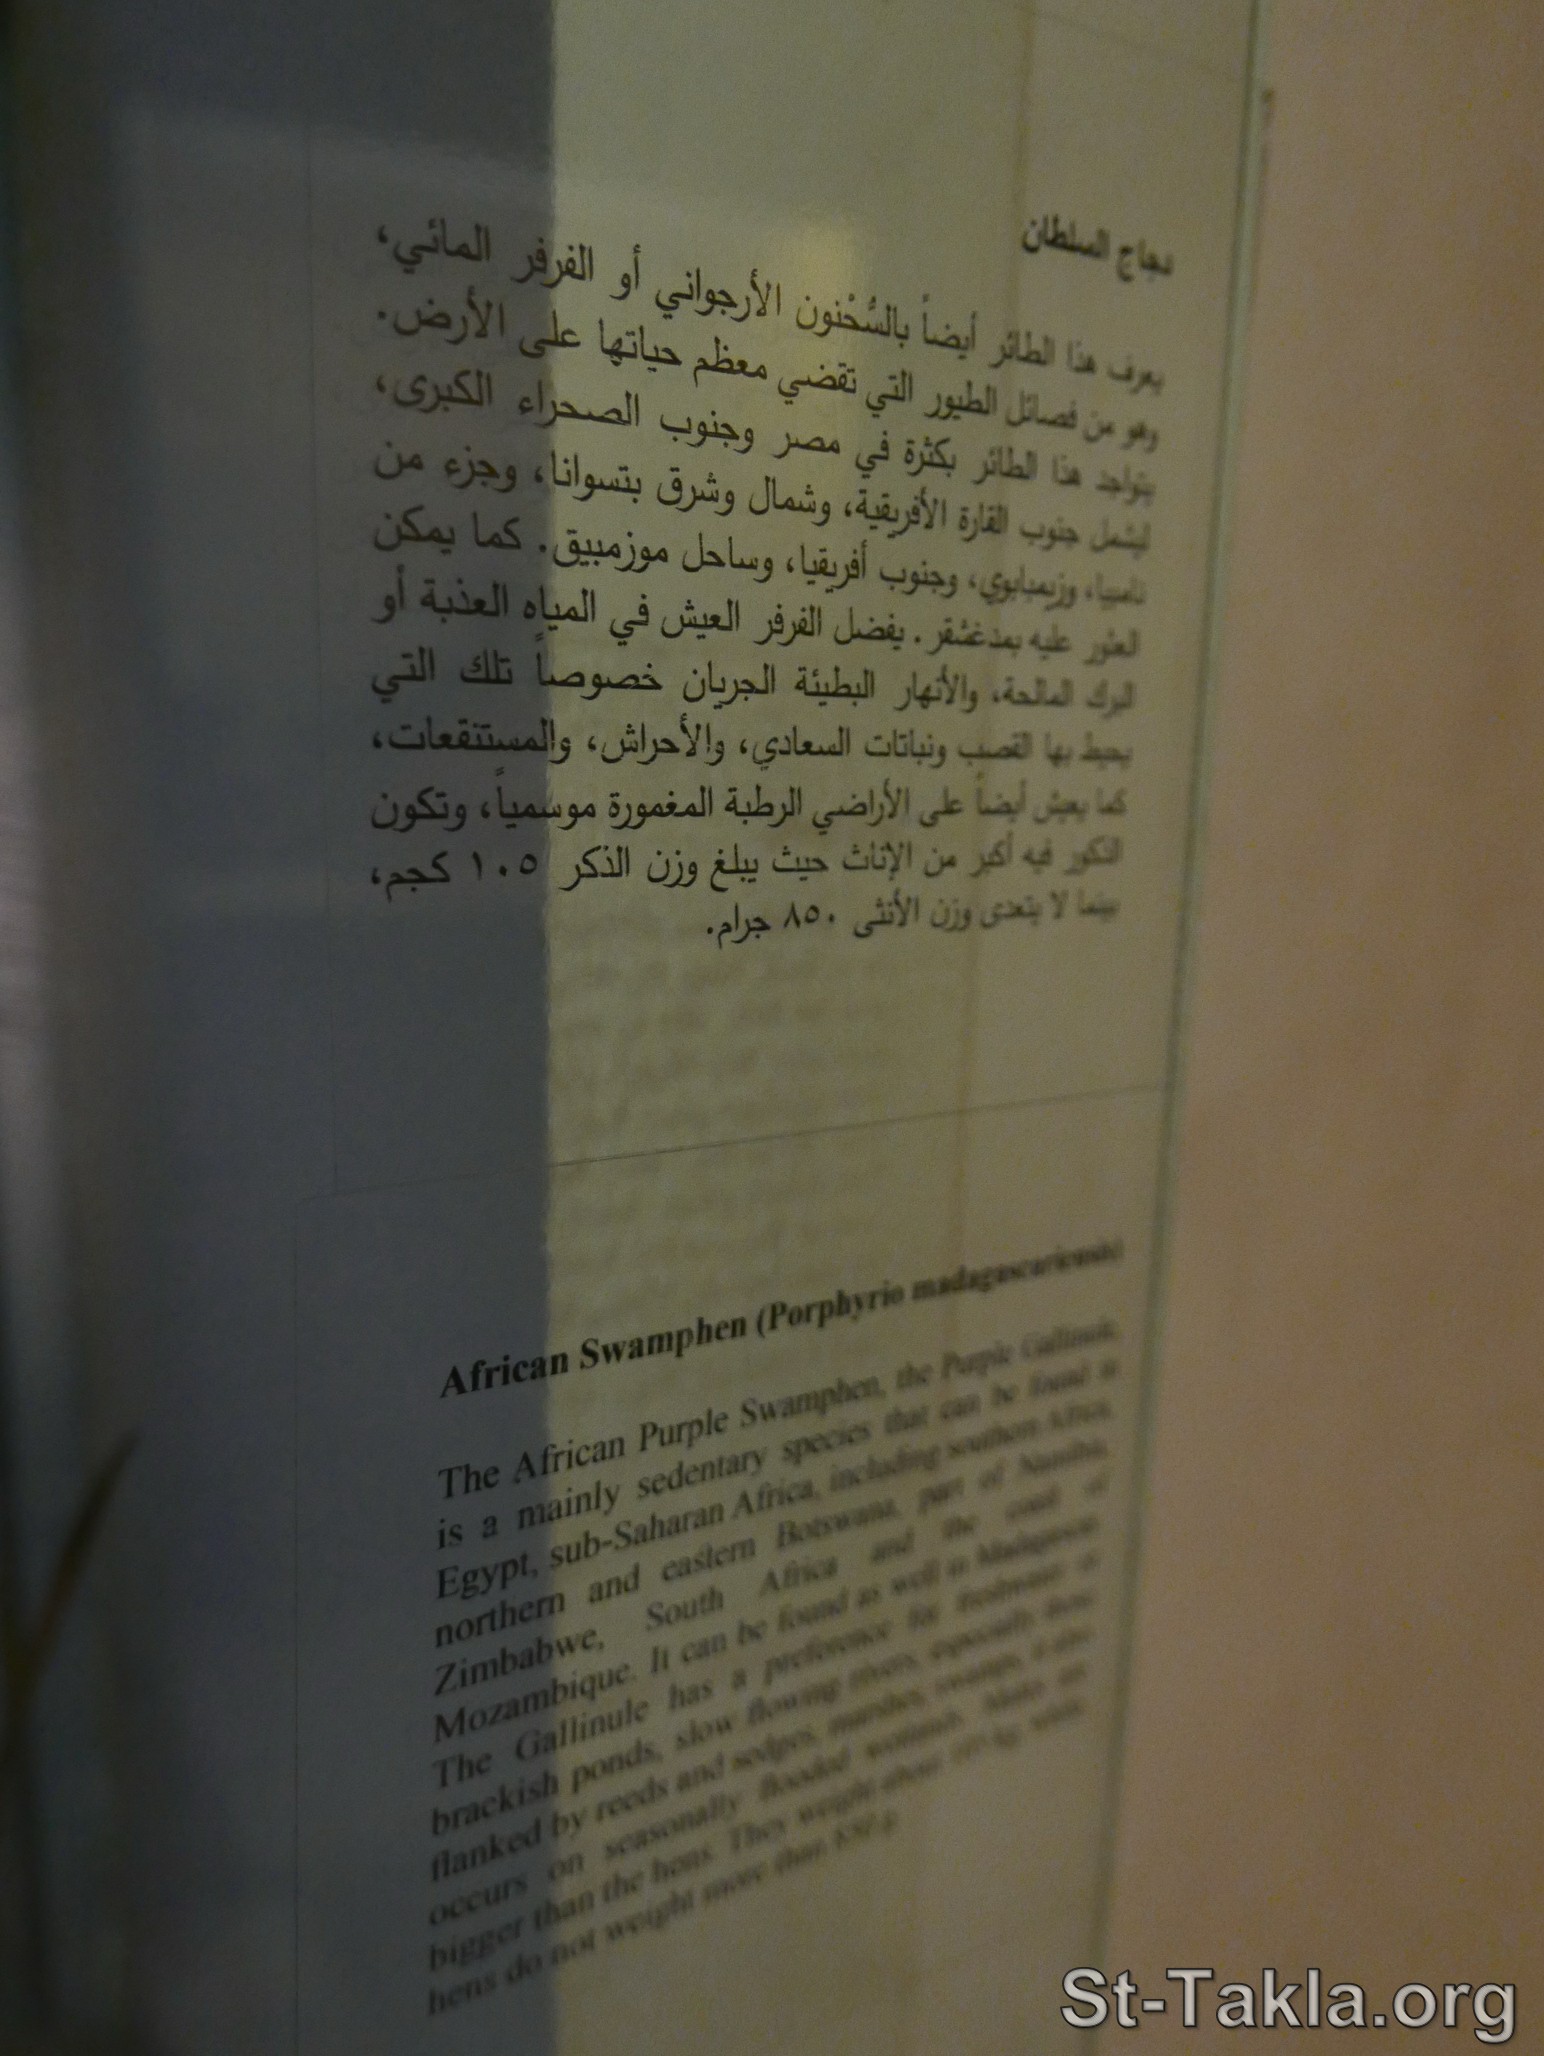 دجاج السلطان
يعرف هذا الطائر أيضاً بالسُّحْنون الأرجواني أو الفرفر المائي،
وهو من فصائل الطيور التي تقضي معظم حياتها على الأرض.
يتواجد هذا الطائر بكثرة في مصر وجنوب الصحراء الكبرى،
ليشمل جنوب القارة الأفريقية، وشمال وشرق بتسوانا، وجزء من
نامبيا، وزيمبابوي، وجنوب أفريقيا، وساحل موزمبيق. كما يمكن
العثور عليه بمدغشقر. يفضل الفرفر العيش في المياه العذبة أو
البرك المالحة، والأنهار البطيئة الجريان خصوصاً تلك التي
يحيط بها القصب ونباتات السعادي، والأحراش، والمستنقعات،
كما يعيش أيضاً على الأراضي الرطبة المغمورة موسمياً، وتكون
الذكور فيه أكبر من الإناث حيث يبلغ وزن الذكر ١٠٥ كجم،
بينما لا يتعدى وزن الأنثى ٨٥٠ جرام.
African Swamphen (Porphyrio madagascariensis)
The African Purple Swamphen, the Purple Gallinule,
is a mainly sedentary species that can be found in
Egypt, sub-Saharan Africa, including southern Africa,
northern and eastern Botswana, part of Namibia,
Zimbabwe, South Africa and the coast of
Mozambique. It can be found as well in Madagascar.
The Gallinule has a preference for freshwater or
brackish ponds, slow flowing rivers, especially those
flanked by reeds and sedges, marshes, swamps, it also
occurs on seasonally flooded wetlands. Males are
bigger than the hens. They weight about kg, while
hens do not weight more than 850 g.
St-Takla.org